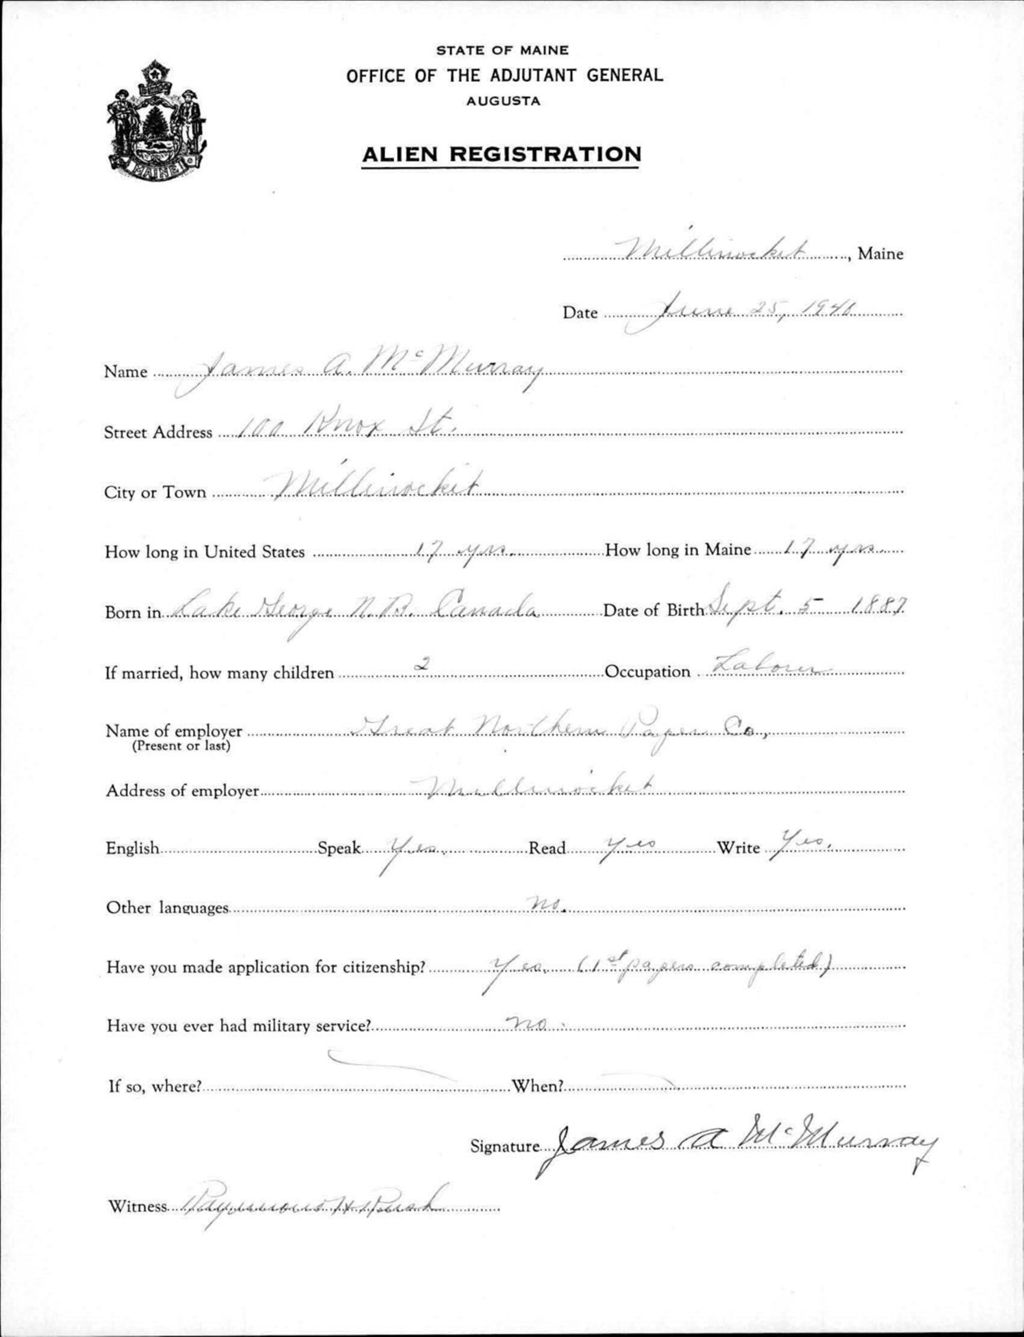 STATE OF MAINE
OFFICE OF THE ADJUTANT GENERAL
AUGUSTA
ALIEN REGISTRATION
MAINE
Millinocket, Maine
Date June 25, 1940
Name James A. McMurray
Street Address 100 Knox St.
City or Town Millinocket
How long in United States 17 yrs. How long in Maine 17 yrs.
Born in Lake George N.B. Canada Date of Birth Sept. 5 1887
If married, how many children 2 Occupation Laborer
Name of employer Great Northern Paper Co,
(Present or last)
Address of employer Millinocket
English Speak Yes. Read Yes Write Yes.
Other languages no.
Have you made application for citizenship? Yes. (1st papers completed)
Have you ever had military service? no.
If so, where? When?
Signature James A McMurray
Witness Raymond H Rush